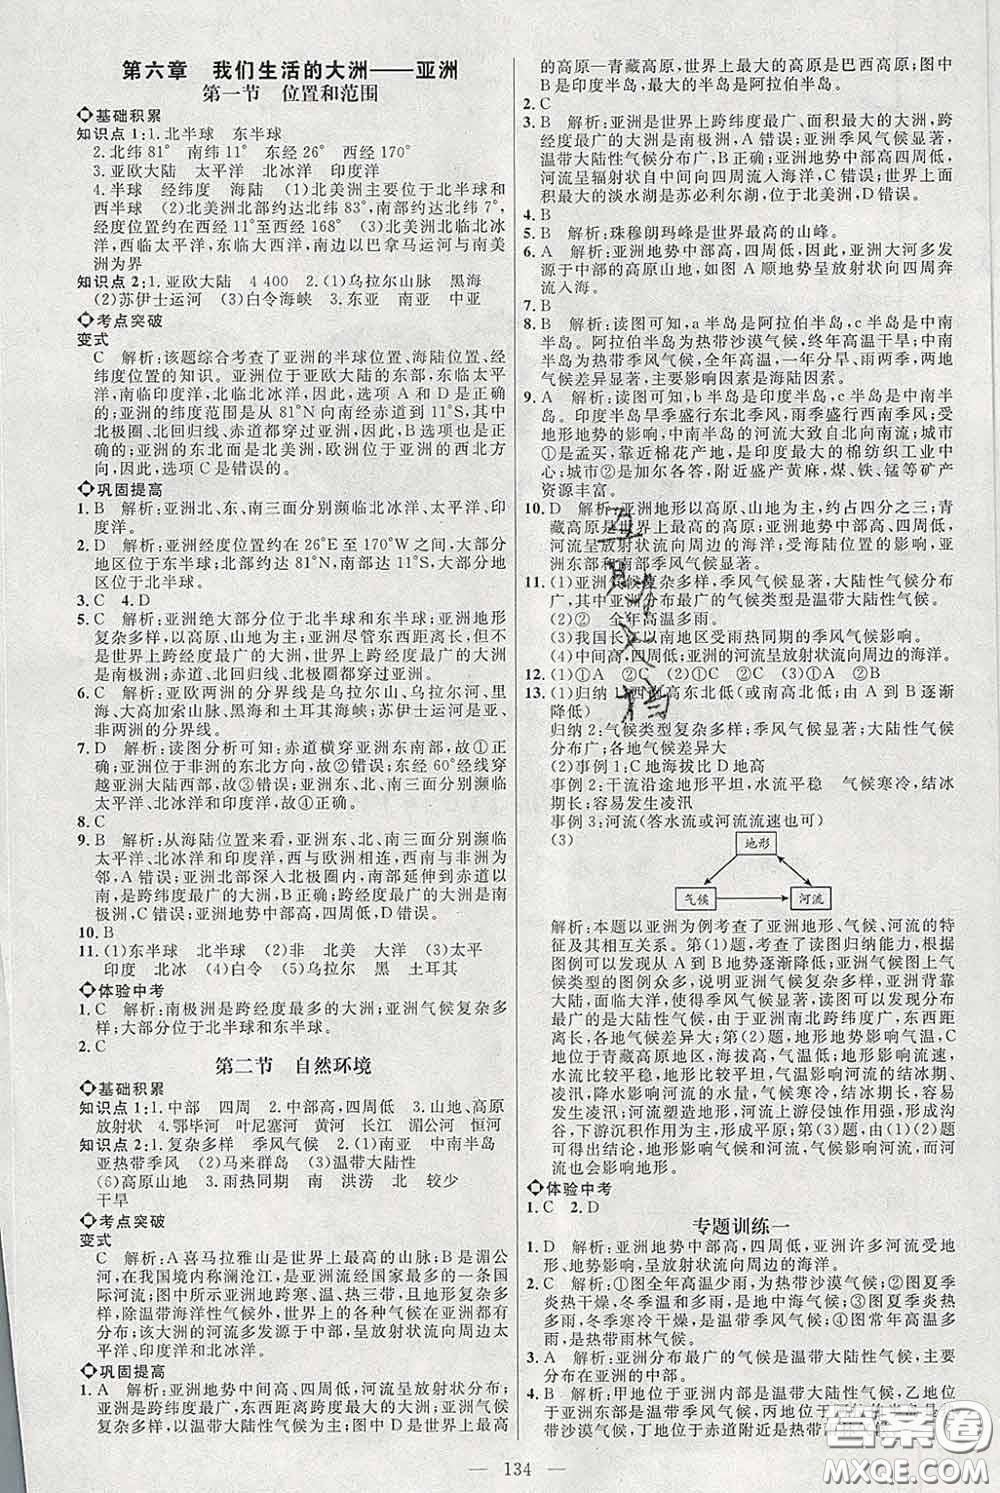 第六章 我们生活的大洲——亚洲
第一节 位置和范围
基础积累
知识点1:1.北半球 东半球
2.北纬81° 南纬11° 东经26° 西经170°
3.亚欧大陆 太平洋 北冰洋 印度洋
4.半球 经纬度 海陆 (1)北美洲主要位于北半球和
西半球 (2)北美洲北部约达北纬83°,南部约达北纬7°,
经度位置约在西经11°至西经168° (3)北美洲北临北冰
洋,西临太平洋,东临大西洋,南边以巴拿马运河与南美
洲为界
知识点2:1.亚欧大陆 4 400 2.(1)乌拉尔山脉 黑海
(2)苏伊士运河 (3)白令海峡 3.东亚 南亚 中亚
考点突破
变式
C 解析:该题综合考查了亚洲的半球位置、海陆位置、经
纬度位置的知识。亚洲位于亚欧大陆的东部,东临太平
洋,南临印度洋,北临北冰洋,因此,选项A和D是正确
的;亚洲的纬度范围是从81°N向南经赤道到11°S,其中
北极圈、北回归线、赤道都穿过亚洲,因此,B选项也是正
确的;亚洲的东北面是北美洲,欧洲位于亚洲的西北方
向,因此,选项C是错误的。
巩固提高
1.B 解析:亚洲北、东、南三面分别濒临北冰洋、太平洋、印
度洋。
2.D 解析:亚洲经度位置约在26°E至170°W之间,大部分
地区位于东半球;亚洲纬度位置约在11°S至81°N,大部分
地区位于北半球。
3.C 4.D
5.C 解析:亚洲绝大部分位于北半球和东半球;亚洲地形
复杂多样,以高原、山地为主;亚洲尽管东西距离长,但不
是世界上跨经度最广的大洲,世界上跨经度最广的大洲
是南极洲;赤道、北回归线、北极圈都穿过亚洲。
6.C 解析:亚欧两洲的分界线是乌拉尔山、乌拉尔河、里
海、大高加索山脉、黑海和土耳其海峡;苏伊士运河是亚、
非两洲的分界线。
7.D 解析:读图分析可知:赤道横穿亚洲东南部,故①正
确;亚洲大部分位于东半球,故②错误;东经60°经线穿
越亚洲大陆西部,故③错误;亚洲东、北、南三面分别濒临
太平洋、北冰洋和印度洋,故④正确。
8.C
9.B 解析:从海陆位置来看,亚洲东、北、南三面分别濒临
太平洋、北冰洋和印度洋,西与欧洲相连,西南与非洲为
邻,A错误;亚洲北部深入北极圈内,南部延伸到赤道以
南,是跨纬度最广的大洲,B正确;跨经度最广的大洲是南极
洲,C错误;亚洲地势中部高,四周低,D错误。
10.B
11.(1)东半球 北半球 (2)非 北美 大洋 (3)太平
印度 北冰 (4)白令 (5)乌拉尔 黑 土耳其
体验中考
1.C 解析:南极洲是跨经度最多的大洲;亚洲气候复杂多
样;大部分位于北半球和东半球。
2.C
第二节 自然环境
基础积累
知识点1:1.中部 四周 2.中高周低 3.山地、高原
放射状 4.鄂毕河 叶尼塞河 黄河 长江 湄公河 恒河
知识点2:1.复杂多样 季风气候 2.(1)南亚 中南半岛
亚热带季风 (2)马来群岛 (3)温带大陆性
(6)高原山地 3.雨热同期 南 洪涝 北 较少
干旱
考点突破
变式
C 解析:A喜马拉雅山是世界上最高的山脉;B是湄公
河,在我国境内称澜沧江,是亚洲流经国家最多的一条
国际河流;图中所示亚洲地跨寒、温、热三带,且地形复杂
多样,除温带海洋性气候外,世界上的各种气候在亚洲都有
分布;该大洲的河流多发源于中部,呈放射状流向周边太平
洋、印度洋和北冰洋。
巩固提高
1.A 解析:亚洲地势中间高、四周低,河流呈放射状分布;
亚洲是跨纬度最广、东西距离跨度最大的大洲;亚洲气候
复杂多样,以温带大陆性气候为主;图中D是世界上最高
的高原—青藏高原,世界上最大的高原是巴西高原;图中
B是印度半岛,最大的半岛是阿拉伯半岛。
2.C
3.B 解析:亚洲是世界上跨纬度最广、面积最大的大洲,跨
经度最广的大洲是南极洲,A错误;亚洲季风气候显著,
温带大陆性气候分布广,B正确;亚洲地势中部高四周低,
河流呈辐射状自大陆中间向四周流入海洋,C错误;世界上面
积最大的淡水湖是苏必利尔湖,位于北美洲,D错误。
4.B
5.B 解析:珠穆朗玛峰是世界最高的山峰。
6.A 解析:亚洲地势中部高,四周低,因此,亚洲大河多发
源于中部的高原山地,如图A顺地势呈放射状向四周奔
流入海。
7.B
8.B 解析:读图可知,a半岛是阿拉伯半岛,c半岛是中南
半岛。阿拉伯半岛为热带沙漠气候,终年高温干旱;中南
半岛为热带季风气候,全年高温,一年分旱、雨两季,两地
气候差异显著,主要影响因素是海陆因素。
9.A 解析:读图可知,b半岛是印度半岛,c半岛是中南半
岛。印度半岛旱季盛行东北季风,雨季盛行西南季风;受
地形地势的影响,中南半岛的河流大致自北向南流;城市
①是孟买,靠近棉花产地,是印度最大的棉纺织工业中
心;城市②是加尔各答,附近盛产黄麻,煤、铁、锰等矿产
资源丰富。
10.D 解析:亚洲地形以高原、山地为主,约占四分之三;青
藏高原是世界上最高的高原;亚洲地势中部高,四周低,
河流呈放射状流向周边的海洋;受海陆位置的影响,亚洲
东部和南部的季风气候显著。
11.(1)亚洲气候复杂多样,季风气候显著,大陆性气候分布
广,其中亚洲分布最广的气候类型是温带大陆性气候。
(2)② 全年高温多雨。
(3)我国长江以南地区受雨热同期的季风气候影响。
(4)中间高,四周低,亚洲的河流呈放射状流向周边的海洋。
12.(1)①A ②C (2)①C ②A (3)①A ②B
13.(1)归纳1:西南高东北低(或南高北低;由A到B逐渐
降低)
归纳2:气候类型复杂多样;季风气候显著;大陆性气候
分布广;各地气候差异大
(2)事例1:C地海拔比D地高
事例2:干流沿途地形平坦,水流平稳 气候寒冷,结冰
期长;容易发生凌汛
事例3:河流(答水流或河流流速也可)
(3)
地形
气候
河流
解析:本题以亚洲为例考查了亚洲地形、气候、河流的特
征及其相互关系。第(1)题,考查了读图归纳能力,根据
图例可以发现从A到B地势逐渐降低;亚洲气候图上气
候类型的图例众多,说明亚洲气候复杂多样,亚洲背靠
大陆,面临大洋,使得季风气候显著;图中可以发现分布
最广的是大陆性气候,由于亚洲南北跨纬度广,东西距
离长,各地气候差异大。第(2)题,地形影响气温,C地
位于青藏高原地区,海拔高,气温低;地形影响流速,
东西伯利亚地形平坦,水流平稳;气候影响河流的结冰
期、凌汛,降水影响河流的水量,气候寒冷,结冰期长,容易
发生凌汛;河流塑造地形,上游以侵蚀作用强,形成沟
谷,下游沉积作用为主,形成平原。第(3)题,由(1)(2)题
可得出结论,地形影响气候、河流,气候影响河流,而河流
也会影响地形。
体验中考
1.C 2.D
专题训练一
1.D 解析:亚洲地势中部高,四周低,亚洲许多河流受地
形、地势影响,呈放射状流向周边的海洋。
2.C 解析:①图全年高温少雨,为热带沙漠气候;②图夏季
炎热干燥,冬季温和多雨,是地中海气候;③图夏季炎热多
雨,冬季寒冷干燥,是温带季风气候;④图常年高温多雨,
是热带雨林气候。
3.A 解析:亚洲分布最广的气候是温带大陆性气候,主要
分布在亚洲的中部。
4.B 解析:甲地位于亚洲内部是温带大陆性气候,乙地位
于亚洲东部是温带季风气候,丙地位于阿拉伯半岛是热
带沙漠气候,丁地位于赤道附近是热带雨林气候
134
答案圈
MXQE.COM